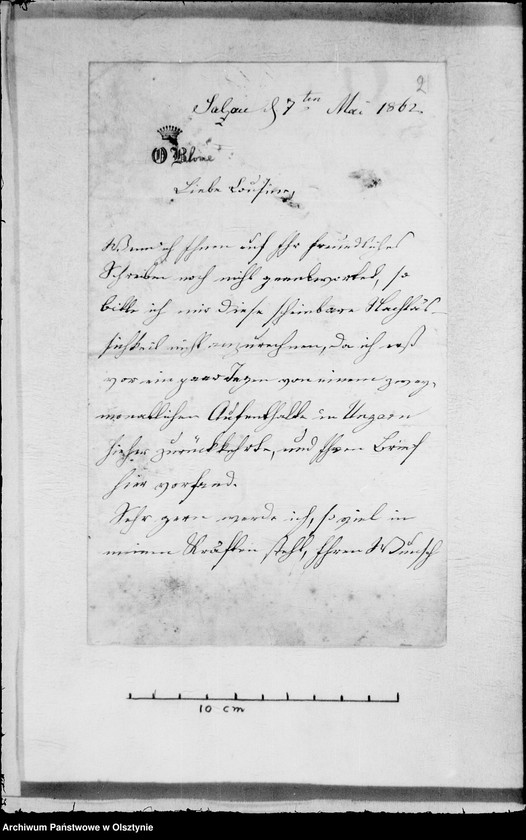 2
Salzau d 7ten Mai 1862.
O Blome
Liebe Cousine,
Wenn ich Ihnen auf Ihr freundliches
Schreiben noch nicht geantwortet, so
bitte ich mir diese scheinbare Nachläs-
sigkeit nicht anzurechnen, da ich erst
vor ein paar Tagen von einem zwey-
monatlichen Aufenthalte in Ungarn
hieher zurückkehrte, und Ihren Brief
hier vorfand.
Sehr gern werde ich, so viel in
meinen Kräften steht, Ihren Wunsch
10 cm
Archiwum Państwowe w Olsztynie